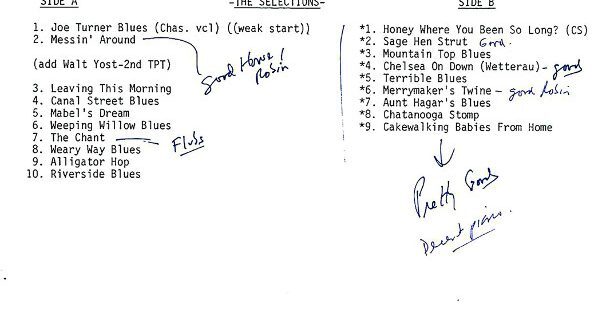 SIDE A
-THE SELECTIONS-
SIDE B
1. Joe Turner Blues (Chas. vcl) ((weak start))
2. Messin' Around
(add Walt Yost-2nd TPT)
Good Horns!
Robin
3. Leaving This Morning
4. Canal Street Blues
5. Mabel's Dream
6. Weeping Willow Blues
7. The Chant
Flubs
8. Weary Way Blues
9. Alligator Hop
10. Riverside Blues
*1. Honey Where You Been So Long? (CS)
*2. Sage Hen Strut Good.
*3. Mountain Top Blues
*4. Chelsea On Down (Wetterau)- good
*5. Terrible Blues
*6. Merrymaker's Twine - good Robin
*7. Aunt Hagar's Blues
*8. Chatanooga Stomp
*9. Cakewalking Babies From Home
Pretty Good
Decent piano.